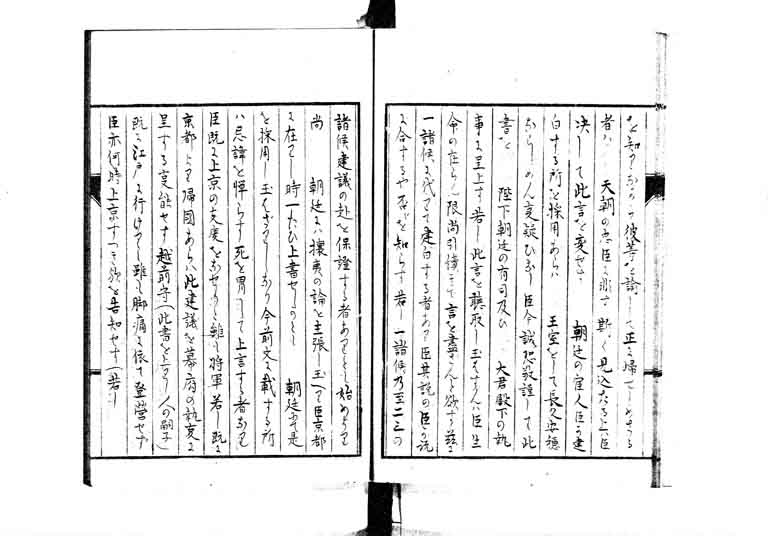 を知りながら彼等を諭して正に帰せしめざる
者は 天朝の忠臣に非す斯く見込たる上は臣
决して此言を変せす 朝廷の宦人臣か建
白する所を採用あらは 王室をして長久安穏
ならしめん支疑ひなし臣今誠恐敬謹して此
書を 陛下朝廷の有司及ひ 大君殿下の執
事に呈上す若し此言を聽取し玉はすんは臣生
命の在らん限尚引續きて言を盡さんと欲す茲に
一諸侯に代て建白する者あり臣其説の臣か説
に合するや否やを知らす若 一諸侯乃至二三の
諸候建議の赴を保證する者ありとも始めより
尚 朝廷には攘夷の論を主張し玉へり臣京都
に在りし時一たひ上書せしかとも 朝廷更に是
を採用し玉はさりしなり今前文に載する所
は忌諱を憚らす死を冒して上言する者なり
臣既に上京の支度をなせりと雖も将軍若し既に
京都より帰国あらは此建議を幕府の執事に
呈する支能はす越前守(此書を上りし人の嗣子)
既に江戸に行けりと雖も脚痛に依て登営せす
臣亦何時上京すへき歟を告知せす(若し